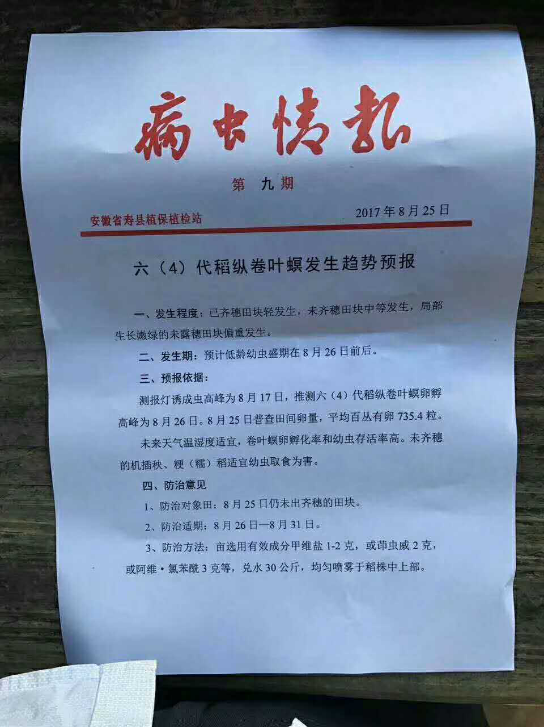 病虫情报
第 九 期
安徽省寿县植保植检站 2017年8月25日
六（4）代稻纵卷叶螟发生趋势预报
一、发生程度：已齐穗田块轻发生，未齐穗田块中等发生，局部
生长嫩绿的未露穗田块偏重发生。
二、发生期：预计低龄幼虫盛期在8月26日前后。
三、预报依据：
测报灯诱成虫高峰为8月17日，推测六（4）代稻纵卷叶螟卵孵
高峰为8月26日。8月25日普查田间卵量，平均百丛有卵735.4粒。
未来天气温湿度适宜，卷叶螟卵孵化率和幼虫存活率高。未齐穗
的机插秧、粳（糯）稻适宜幼虫取食为害。
四、防治意见
1、防治对象田：8月25日仍未出齐穗的田块。
2、防治适期：8月26日—8月31日。
3、防治方法：亩选用有效成分甲维盐1-2克，或茚虫威2克，
或阿维·氯苯酰3克等，兑水30公斤，均匀喷雾于稻株中上部。